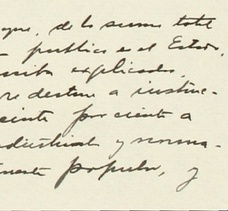 que, de la suma total
publica es el Estado,
explicados,
re destine a instruc-
ciento por ciento a
industrial y norma-
popular, y